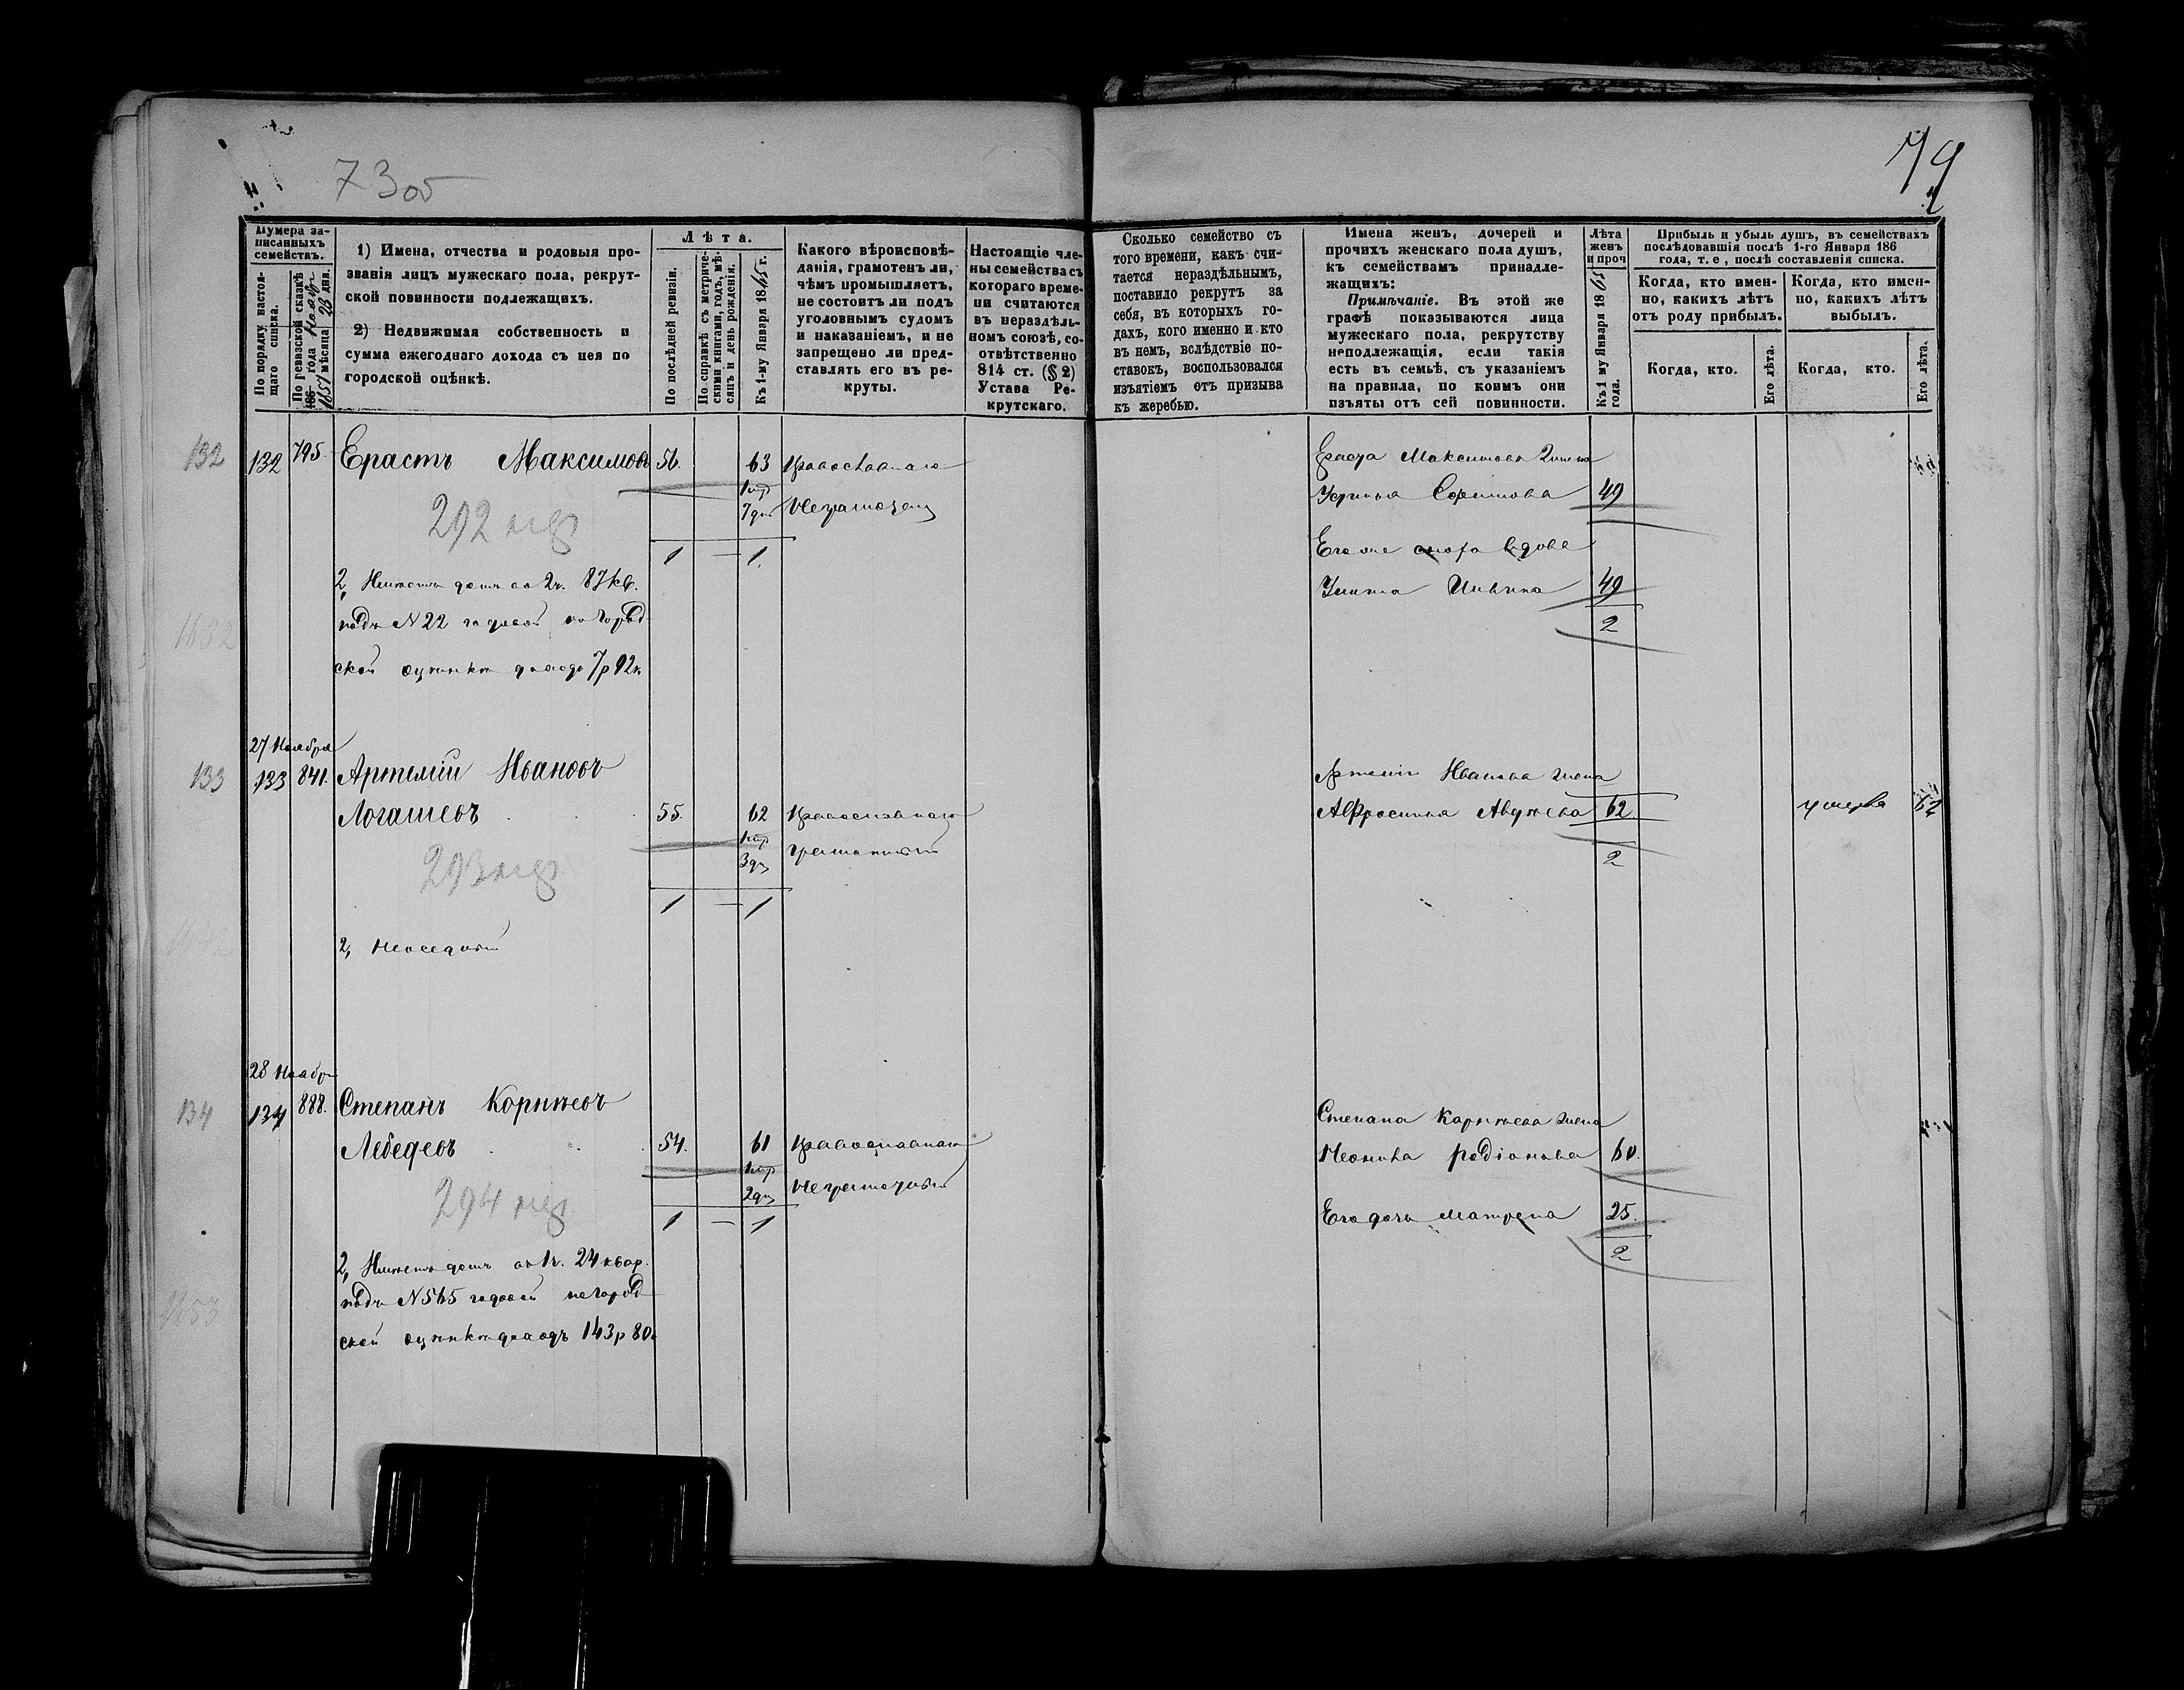 73об
79
Нумера за-
писанныхъ
семействъ.
По порядку настоя-
щаго списка.
По ревизской сказкѣ
186 года
1857 мѣсяца 23 дня.
1) Имена, отчества и родовыя про-
званія лицъ мужескаго пола, рекрут-
ской повинности подлежащихъ.
2) Недвижимая собственность и
сумма ежегоднаго дохода съ нея по
городской оцѣнкѣ.
Лѣта.
По послѣдней ревизіи.
По справкѣ съ метриче-
скими книгами, годъ, мѣ-
сяцъ и день рожденія.
Къ 1-му Января 1865 г.
Какого вѣроисповѣ-
данія, грамотенъ ли,
чѣмъ промышляетъ,
не состоитъ ли подъ
уголовнымъ судомъ
и наказаніемъ, и не
запрещено ли пред-
ставлять его въ ре-
круты.
Настоящіе чле-
ны семейства съ
котораго време-
ни считаются
въ нераздѣль-
номъ союзѣ, со-
отвѣтственно
814 ст. (§ 2)
Устава Ре-
крутскаго.
Сколько семейство съ
того времени, какъ счи-
тается нераздѣльнымъ,
поставило рекрутъ за
себя, въ которыхъ го-
дахъ, кого именно и кто
въ немъ, вслѣдствіе по-
ставокъ, воспользовался
изъятіемъ отъ призыва
къ жеребью.
Имена женъ, дочерей и
прочихъ женскаго пола душъ,
къ семействамъ принадле-
жащихъ:
Примѣчаніе. Въ этой же
графѣ показываются лица
мужескаго пола, рекрутству
неподлежащія, если такія
есть въ семьѣ, съ указаніемъ
на правила, по коимъ они
изъяты отъ сей повинности.
Лѣта
женъ
и проч
Къ 1 му Января 1865
года.
Прибыль и убыль душъ, въ семействахъ
послѣдовавшія послѣ 1-го Января 186
года, т. е., послѣ составленія списка.
Когда, кто имен-
но, какихъ лѣтъ
отъ роду прибылъ.
Когда, кто имен-
но, какихъ лѣтъ
выбылъ.
Когда, кто.
Его лѣта.
Когда, кто.
Его лѣта.
132 132 795. Ерастъ Максимовъ 56. 63 Православнаго
7 дн Неграмотенъ
292
1 — 1.
2, Имѣетъ домъ во 2 ч. 87 кв.
подъ N 22 годовой по город
ской оцѣнкѣ доходъ 7 р 92 к
1632
Ераста Максимова жена
Ефимова 49
вдова
49
2
27 Ноября
133 133 841. Артемій Ивановъ
Логашевъ 55. 62 Православнаго
3 дн грамотный
293
1 — 1
2, Неоседлый
Артемія Иванова жена
Авдѣева 62 умерла 62
2
28 Ноябр
134 134 888. Степанъ Корнѣевъ
Лебедевъ 54. 61 Православнаго
2 дн Неграмотный
294
1 — 1
2, Имѣетъ домъ въ 1 ч. 24 квар.
подъ N 565 годовой по город
ской оцѣнкѣ доходъ 143 р 80
1653
Степана Корнѣева жена
Родіонова 60.
Его дочь Матрена 25.
2